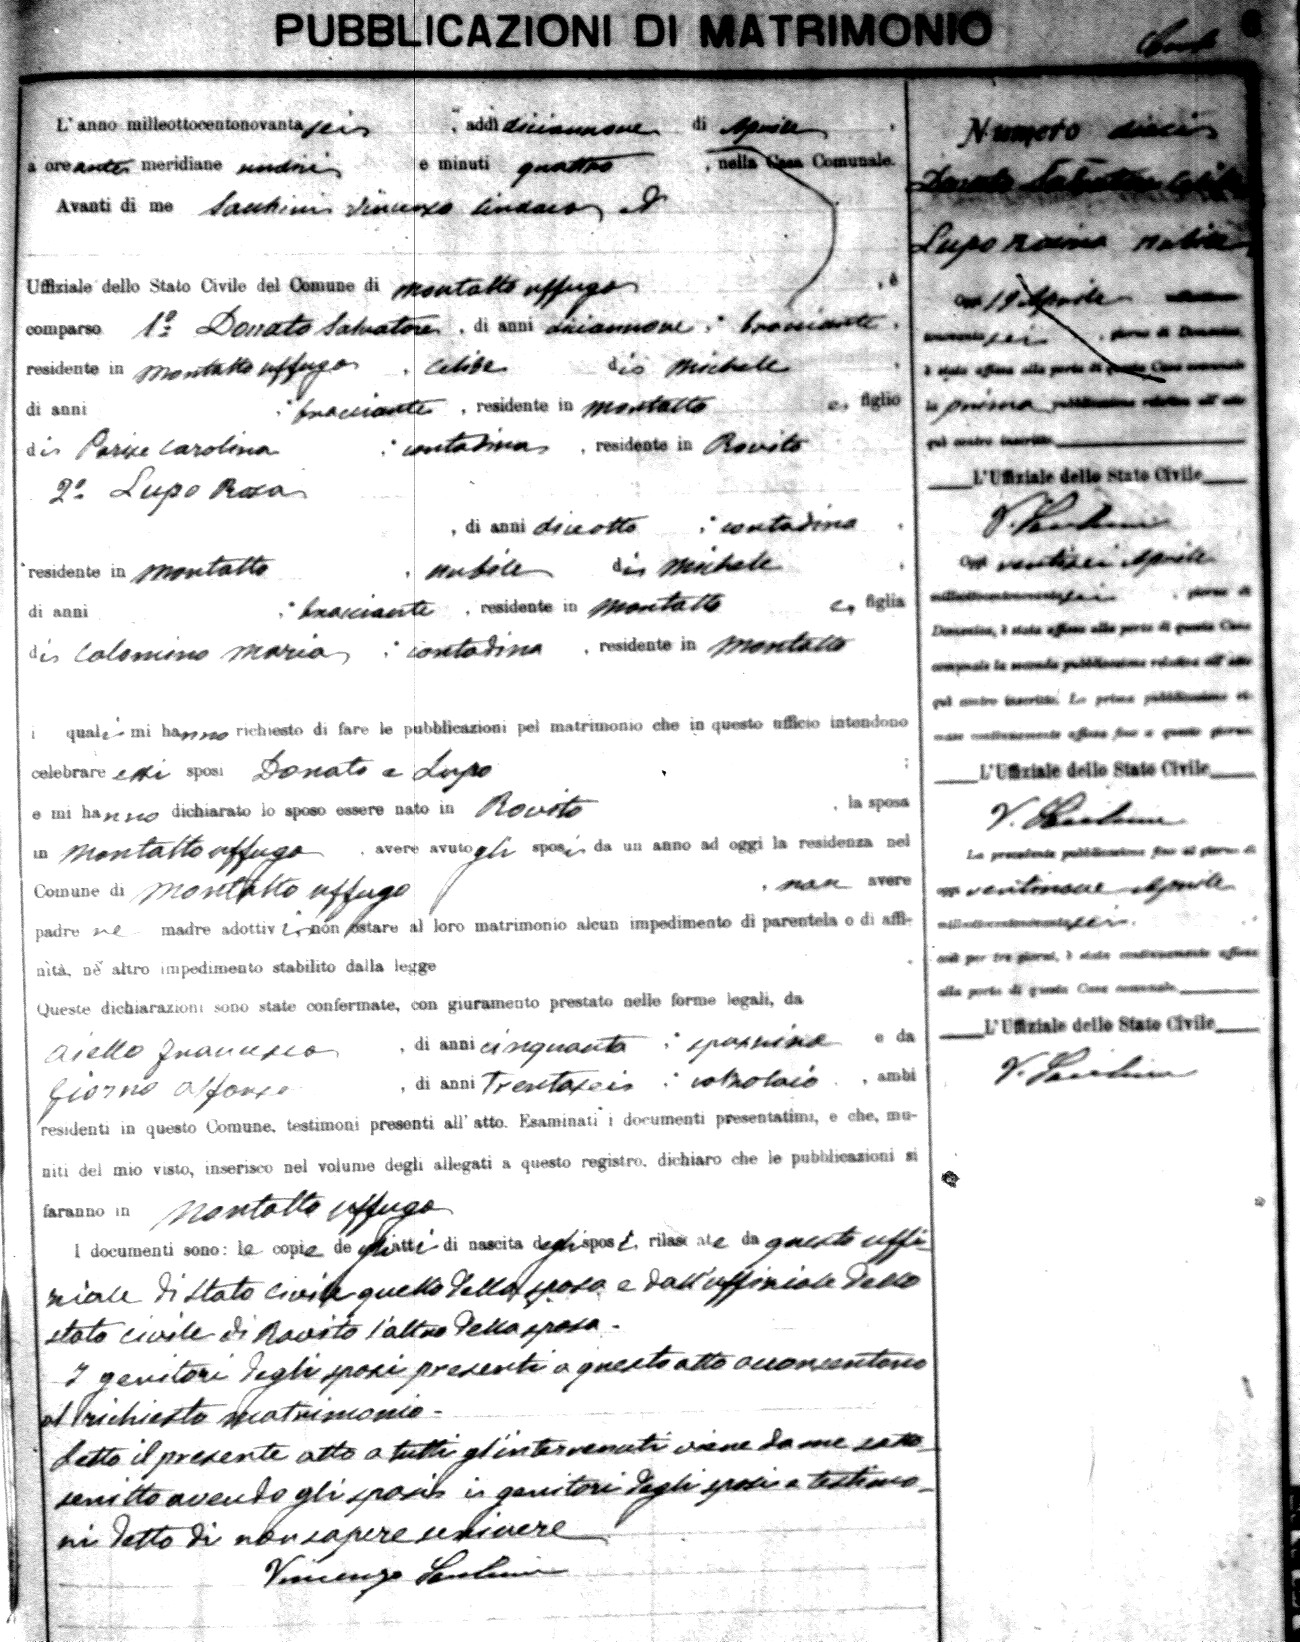 PUBBLICAZIONI DI MATRIMONIO
6
L'anno milleottocentonovantasei, addì diciannove di Aprile,
a ore ante meridiane undici e minuti quattro, nella Casa Comunale.
Avanti di me Vincenzo Sindaco
Uffiziale dello Stato Civile del Comune di Montalto Uffugo, è
comparso 1º Donato Salvatore, di anni diciannove; bracciante,
residente in Montalto Uffugo, celibe di Michele,
di anni ; bracciante, residente in Montalto e, figlio
di Parise Carolina ; contadina, residente in Rovito
2º Lupo Rosa
, di anni diciotto ; contadina,
residente in Montalto, nubile di Michele,
di anni ; bracciante, residente in Montalto e, figlia
di Colomino Maria ; contadina, residente in Montalto
i quali mi hanno richiesto di fare le pubblicazioni pel matrimonio che in questo ufficio intendono
celebrare essi sposi Donato e Lupo ;
e mi hanno dichiarato lo sposo essere nato in Rovito, la sposa
in Montalto Uffugo, avere avuto gli sposi da un anno ad oggi la residenza nel
Comune di Montalto Uffugo, non avere
padre ne madre adottivi, non ostare al loro matrimonio alcun impedimento di parentela o di affi-
nità, nè altro impedimento stabilito dalla legge.
Queste dichiarazioni sono state confermate, con giuramento prestato nelle forme legali, da
Aiello Francesco, di anni cinquanta ; spazzino e da
Giorno Alfonso, di anni trentasei ; calzolaio, ambi
residenti in questo Comune, testimoni presenti all'atto. Esaminati i documenti presentatimi, e che, mu-
niti del mio visto, inserisco nel volume degli allegati a questo registro, dichiaro che le pubblicazioni si
faranno in Montalto Uffugo
I documenti sono: le copie degli atti di nascita degli sposi, rilasciate da questo uffi-
ziale di stato civile quello della sposa e dall'uffiziale dello
stato civile di Rovito l'altro della sposa.
I genitori degli sposi presenti a questo atto acconsentono
al richiesto matrimonio.
Letto il presente atto a tutti gl'intervenuti viene da me sotto-
scritto avendo gli sposi i genitori degli sposi e testimo-
ni detto di non sapere scrivere
Vincenzo
Numero dieci
Donato Salvatore celibe
Lupo Rosina nubile
Oggi 19 Aprile
novanta sei, giorno di Domenica,
è stata affissa alla porta di questa Casa comunale
la prima pubblicazione relativa all'atto
quì contro inscritto
L'Uffiziale dello Stato Civile
V.
Oggi ventisei Aprile
milleottocentonovantasei, giorno di
Domenica, è stata affissa alla porta di questa Casa
comunale la seconda pubblicazione relativa all'atto
quì contro inscritto. La prima pubblicazione ri-
mase continuamente affissa fino a questo giorno.
L'Uffiziale dello Stato Civile
V.
La precedente pubblicazione fino al giorno di
oggi ventinove Aprile
milleottocentonovantasei.
cioè per tre giorni, è stata continuamente affissa
alla porta di questa Casa comunale.
L'Uffiziale dello Stato Civile
V.